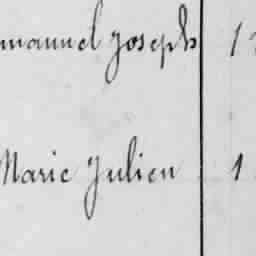 manuel Joseph 1
Marie Julien 1